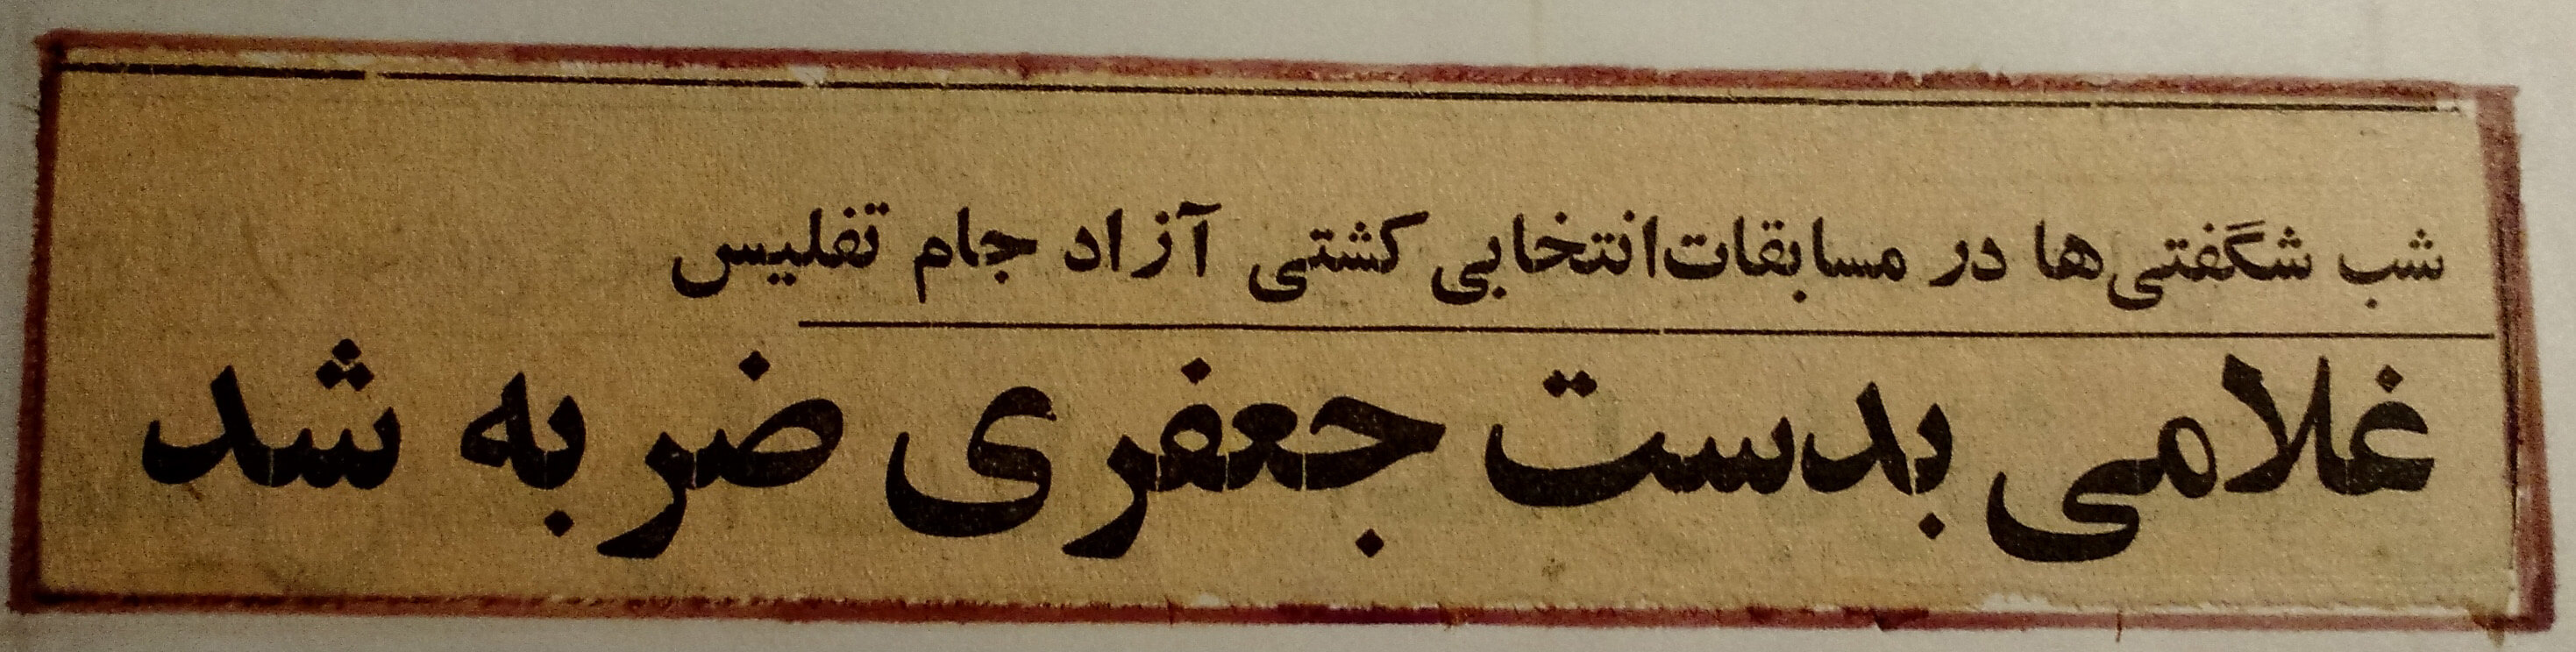 شب شگفتی‌ها در مسابقات انتخابی کشتی آزاد جام تفلیس
غلامی بدست جعفری ضربه شد